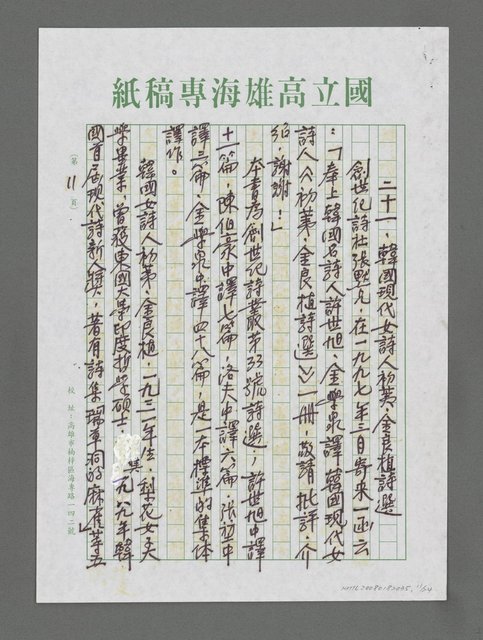 國立高雄海專稿紙
二十一、韓國現代女詩人初荑、金良植詩選
創世紀詩社張默兄，在一九九七年三日寄來一函云
：「奉上韓國名詩人許世旭、金學泉譯《韓國現代女
詩人〈初荑、金良植詩選〉》一冊，敬請批評、介
紹，謝謝！」
本書為創世紀詩叢第33號詩選，許世旭中譯
十一篇，陳伯豪中譯七篇，洛夫中譯六篇，張堃中
譯三篇，金學泉中譯四十八篇，是一本標準的集体
譯作。
韓國女詩人初荑、金良植，一九三一年生，梨花女大
學畢業，曾獲東國大學印度哲學碩士，其一九九年韓
國首屆現代詩新人獎，著有詩集瑞草洞的麻雀等五
（第 11 頁）
校 址：高雄市楠梓區海專路一四二號